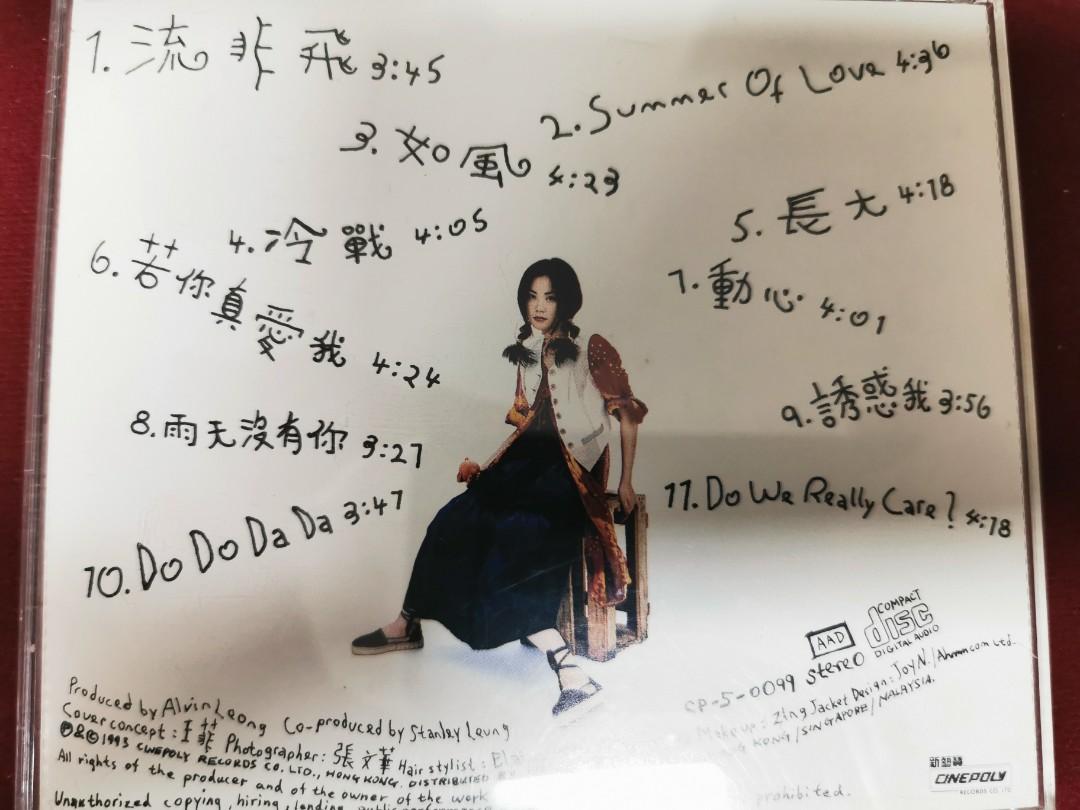 1. 流 非 飛 3:45
2. Summer Of Love 4:36
3. 如風 4:23
4. 冷戰 4:05
5. 長大 4:18
6. 若你真愛我 4:24
7. 動心 4:01
8. 雨天沒有你 3:27
9. 誘惑我 3:56
10. Do Do Da Da 3:47
11. Do We Really Care? 4:18
AAD
COMPACT
disc
DIGITAL AUDIO
CP-5-0099 stereo
Produced by Alvin Leong Co-produced by Stanley Leung
Cover concept : 王菲 Photographer : 張文華 Hair stylist :
Make up : Zing Jacket Design : Joy N. / Ahmm com Ltd.
℗&©1993 CINEPOLY RECORDS CO. LTD., HONG KONG. DISTRIBUTED
KONG / SINGAPORE / MALAYSIA.
All rights of the producer and of the owner of the work
prohibited.
Unauthorized copying, hiring, lending, public
新藝寶
CINEPOLY
RECORDS CO. LTD.